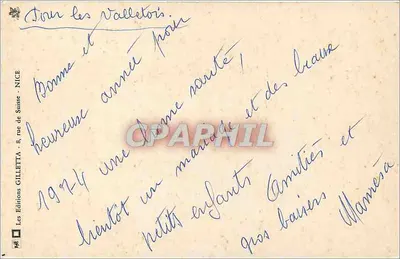 Pour les Valletois.
Bonne et
heureuse année pour
1974 une bonne santé,
bientôt un mariage et des beaux
petits enfants Amitiés et
nos baisers
Mamésa
Les Editions GILLETTA - 8, rue de Suisse - NICE
CPAPHIL